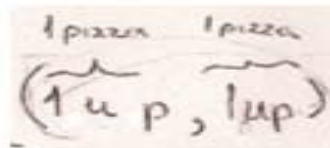 1 pizza 1 pizza
(1 u p, 1 up)